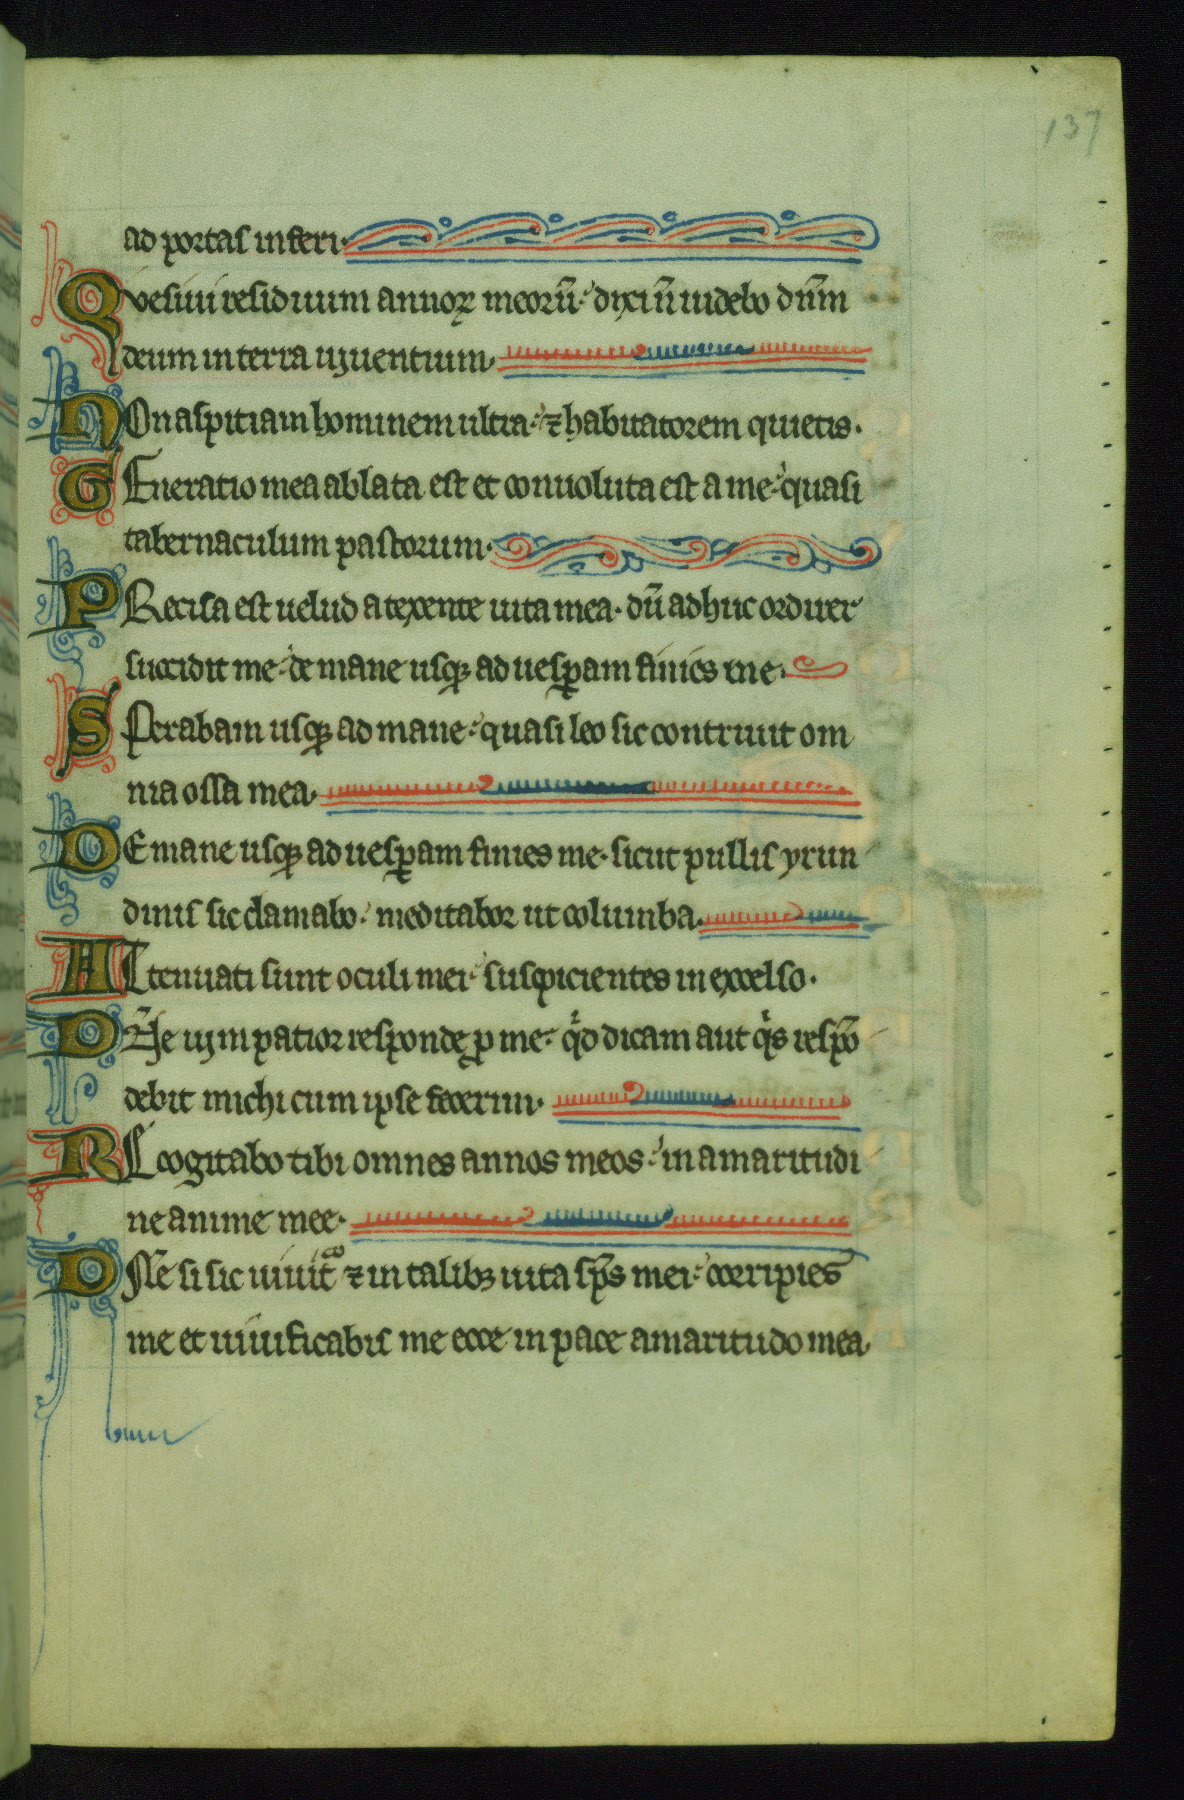 137
ad portas inferi·
Quesiui residuum annoꝝ meorū· dixi n̄ uidebo dn̄m
deum in terra uiuentium·
Non aspitiam hominem ultra· ⁊ habitatorem quietis·
Generatio mea ablata est et conuoluta est a me· quasi
tabernaculum pastorum·
Precisa est uelud a texente uita mea· dū adhuc ordirer
succidit me· de mane usqꝫ ad uesꝑam finies me·
Sperabam usqꝫ ad mane· quasi leo sic contriuit om
nia ossa mea·
De mane usqꝫ ad uesꝑam finies me· sicut pullus yrun
dinis sic clamabo· meditabor ut columba·
Attenuati sunt oculi mei· suspicientes in excelso·
Dn̄e uim patior responde ꝓ me· qͥd dicam aut qͥs respō
debit michi cum ipse fecerim·
Recogitabo tibi omnes annos meos· in amaritudi
ne anime mee·
Dn̄e si sic uiuit᷑ ⁊ in talibꝫ uita sp̄s mei· corripies
me et uiuificabis me ecce in pace amaritudo mea